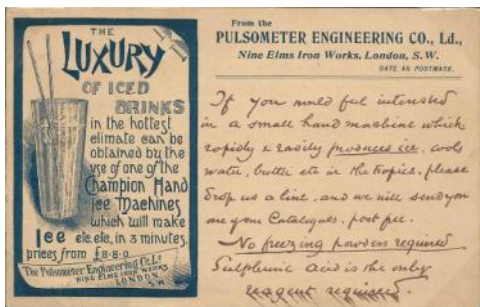 THE
LUXURY
OF ICED
DRINKS
in the hottest
climate can be
obtained by the
use of one of the
Champion Hand
Ice Machines
which will make
Ice etc. etc, in 3 minutes
prices from £8-8-0
The Pulsometer Engineering Co. Ld
NINE ELMS IRON WORKS
LONDON
S.W
From the
PULSOMETER ENGINEERING CO., Ld.,
Nine Elms Iron Works, London, S.W.
DATE AS POSTMARK.
If you would feel interested
in a small hand machine which
rapidly & easily produces ice, cools
water, butter etc in the tropics, please
drop us a line, and we will send you
one of our Catalogues, post free.
No freezing powders required
Sulphuric acid is the only
reagent required.